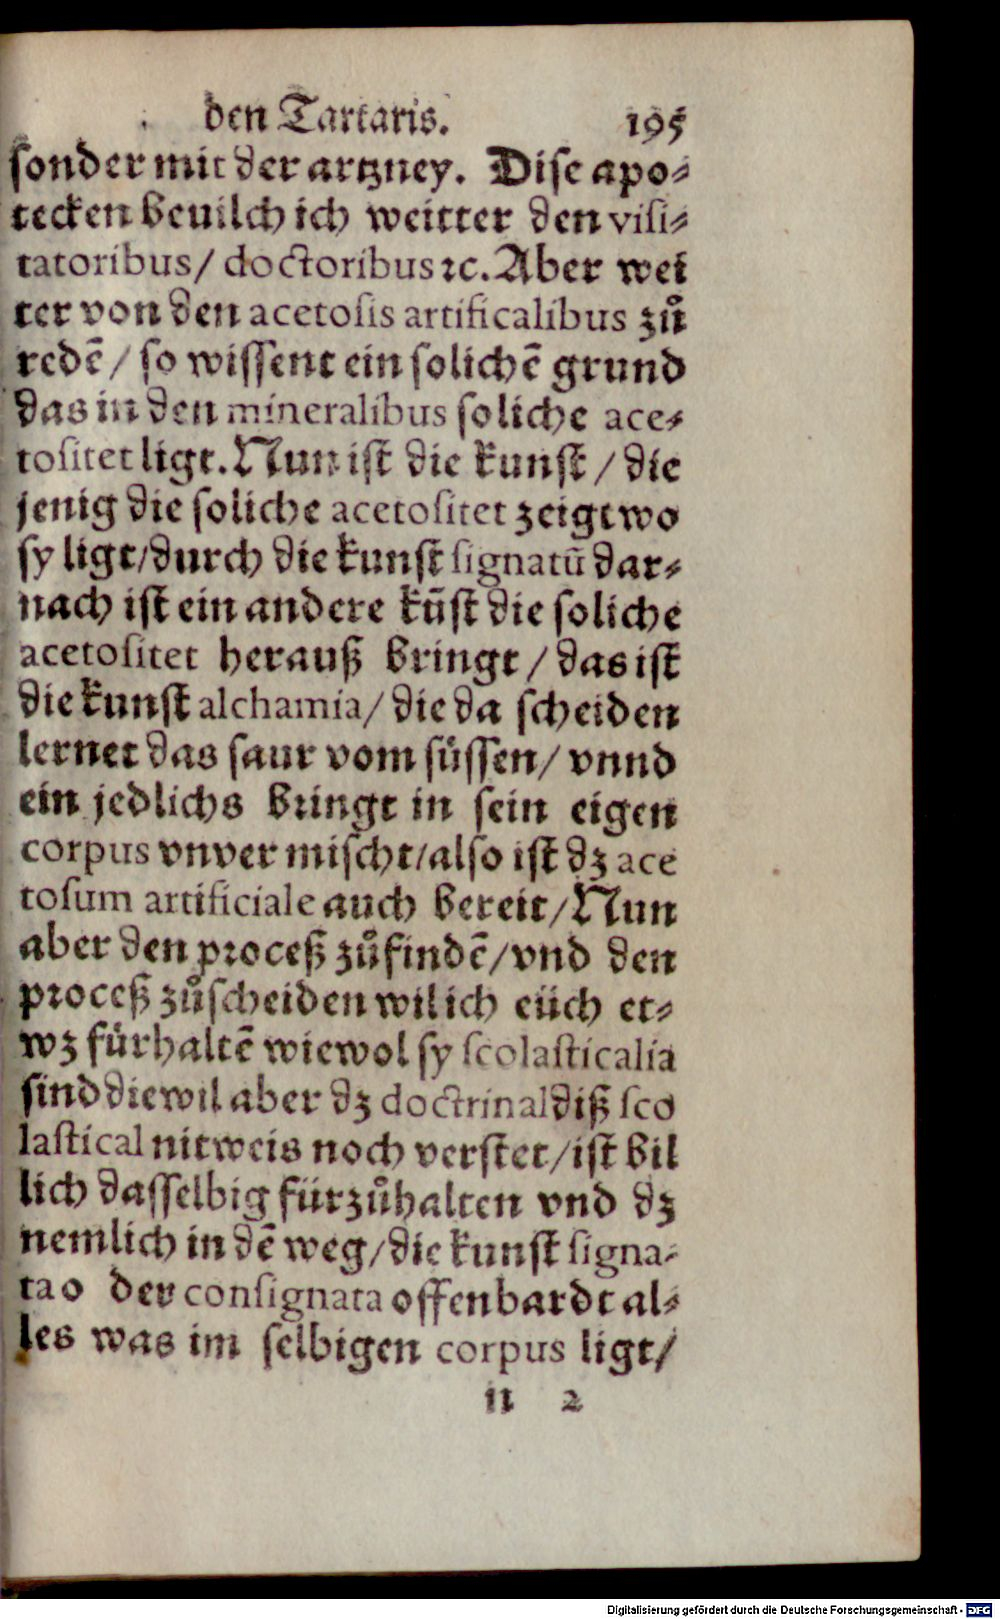 den Tartaris. 195
sonder mit der artzney. Dise apo-
tecken beuilch ich weitter den visi-
tatoribus/ doctoribus ꝛc. Aber wei
ter von den acetosis artificalibus zů
redē/ so wissent ein solichē grund
das in den mineralibus soliche ace-
tositet ligt. Nun ist die kunst/ die
jenig die soliche acetositet zeigt wo
sy ligt/durch die kunst signatū dar-
nach ist ein andere kūst die soliche
acetositet herauß bringt/ das ist
die kunst alchamia/ die da scheiden
lernet das saur vom süssen/ vnnd
ein jedlichs bringt in sein eigen
corpus vnvermischt/also ist dz ace
tosum artificiale auch bereit/Nun
aber den proceß zůfindē/vnd den
proceß zůscheiden wil ich eüch et-
wz fürhaltē wiewol sy scolasticalia
sind diewil aber dz doctrinal diß sco
lastical nit weis noch verstet/ist bil
lich dasselbig fürzůhalten vnd dz
nemlich in dē weg/die kunst signa-
ta o der consignata offenbardt al-
les was im selbigen corpus ligt/
n 2
Digitalisierung gefördert durch die Deutsche Forschungsgemeinschaft - DFG